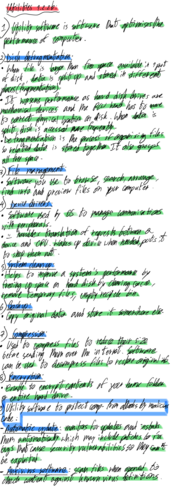 Utilities
1) Utility software is software that optimises the
performance of computer.
2) Disk defragmentation
- When file is larger than free space available in 1 part
of disk, data is split up and stored in different
places (fragmentation).
- It worsens performance as hard disk drives are
mechanical devices and the head has to move
to correct physical position on disk. When data is
split, disk is accessed more frequently.
- Defragmentation is the process of reorganising files
so related data is stored together. It also groups
all free space.
3) File management
- Software you use to browse, search, arrange
find info and preview files on your computer
4) Device drivers
- Software used by OS to manage communications
with peripherals.
- translation of requests between a
device and CPU.
5) System cleanup
- Helps to improve a system's performance by
freeing up space on hard disk by
temporary files, empty recycle bin.
6)
- Copy original data and store it somewhere else
7) Compression
- Used to compress files to reduce their size
before sending them over the internet. Software
can be used to decompress files to restore original
8) Encryption
- Enable to encrypt contents of your home folder
or entire hard drive.
9) Utility software to protect comp from attacks by malicious
code
- Automatic update: monitors for updates and installs
them automatically which may include patches for
bugs that cause security vulnerabilities so they can't
be exploited
- Anti-virus software: scan files when opened to
check content against known virus definitions